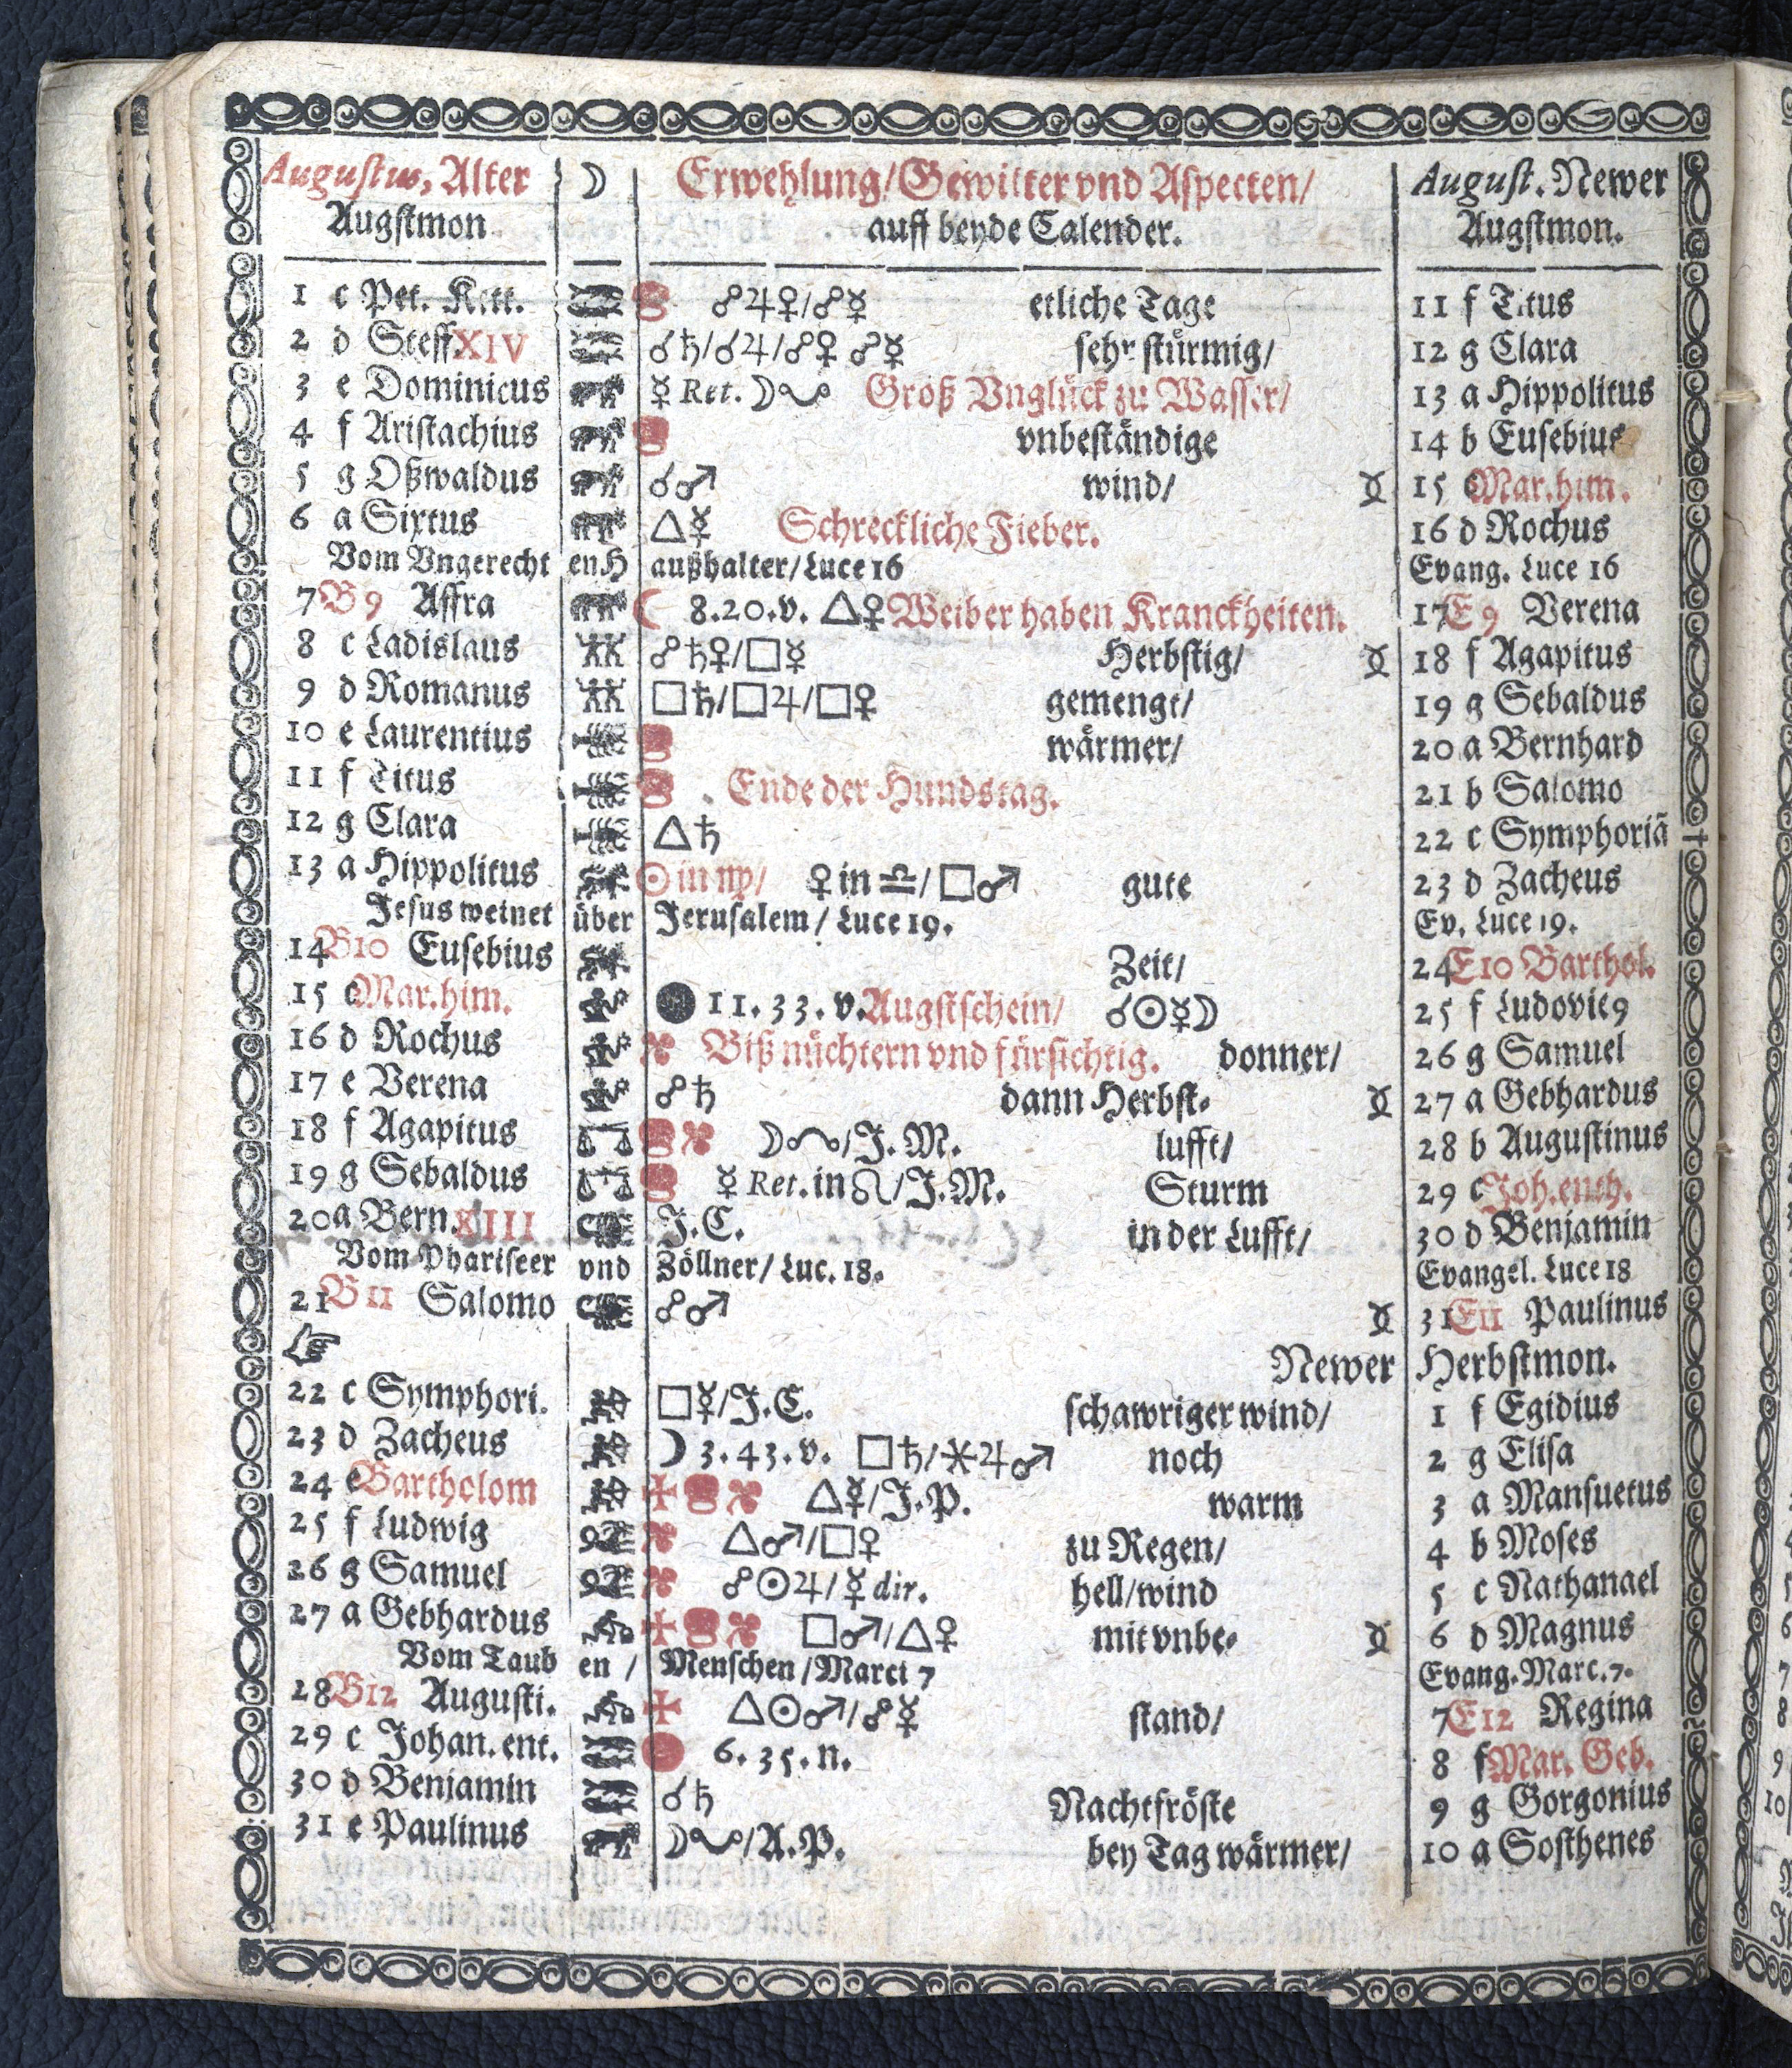 Augustus, Alter ☽ Erwehlung/Gewitter vnd Aspecten/ August. Newer
Augstmon auff beyde Calender. Augstmon.
1 c Pet. Kett. ☍♃♀/☍☿ etliche Tage 11 f Titus
2 d Steff XIV ☌♄/☌♃/☍♀ ☍☿ sehr stürmig/ 12 g Clara
3 e Dominicus ☿ Ret. ☽☋ Groß Vnglück zu Wasser/ 13 a Hippolitus
4 f Aristachius vnbeständige 14 b Eusebius
5 g Oßwaldus ☌♂ wind/ 15 c Mar.him.
6 a Sixtus △☿ Schreckliche Fieber. 16 d Rochus
Vom Vngerecht en H außhalter/Luce 16 Evang. Luce 16
7 B 9 Affra ☾ 8.20.v. △♀ Weiber haben Kranckheiten. 17 E 9 Verena
8 c Ladislaus ☍♄♀/□☿ Herbstig/ 18 f Agapitus
9 d Romanus □♄/□♃/□♀ gemengt/ 19 g Sebaldus
10 e Laurentius wärmer/ 20 a Bernhard
11 f Titus Ende der Hundstag. 21 b Salomo
12 g Clara △♄ 22 c Symphoriã
13 a Hippolitus ☉ in ♍/ ♀ in ♎/□♂ gute 23 d Zacheus
Jesus weinet über Jerusalem/ Luce 19. Ev. Luce 19.
14 B10 Eusebius Zeit/ 24 E10 Barthol.
15 c Mar.him. ● 11.33.v. Augstschein/ ☌☉☿☽ 25 f Ludovic9
16 d Rochus Biß nüchtern vnd fürsichtig. donner/ 26 g Samuel
17 e Verena ☍♄ dann Herbst- 27 a Gebhardus
18 f Agapitus ☽☊/J.M. lufft/ 28 b Augustinus
19 g Sebaldus ☿ Ret. in ♌/J.M. Sturm 29 c Joh.enth.
20 a Bern. XIII J.C. in der Lufft/ 30 d Benjamin
Vom Phariseer vnd Zöllner/ Luc. 18. Evangel. Luce 18
21 B11 Salomo ☍♂ 31 E11 Paulinus
☞ Newer Herbstmon.
22 c Symphori. □☿/J.C. schawriger wind/ 1 f Egidius
23 d Zacheus ☽ 3.43.v. □♄/⚹♃♂ noch 2 g Elisa
24 e Bartholom △☿/J.P. warm 3 a Mansuetus
25 f Ludwig △♂/□♀ zu Regen/ 4 b Moses
26 g Samuel ☍☉♃/☿ dir. hell/wind 5 c Nathanael
27 a Gebhardus □♂/△♀ mit vnbe- 6 d Magnus
Vom Taub en / Menschen/Marci 7 Evang. Marc. 7.
28 B12 Augusti. △☉♂/☍☿ stand/ 7 E12 Regina
29 c Johan. ent. 6.35.n. 8 f Mar. Geb.
30 d Benjamin ☌♄ Nachtfröste 9 g Gorgonius
31 e Paulinus ☽☋/A.P. bey Tag wärmer/ 10 a Sosthenes